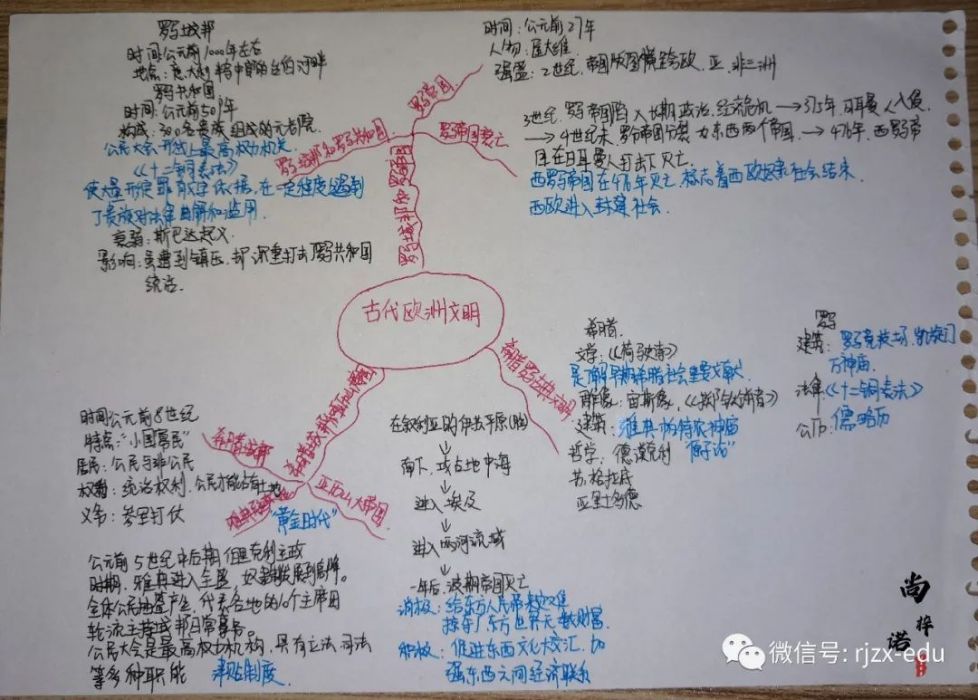 罗马城邦
时间:公元前1000年左右
地点:意大利半岛中部的台伯河畔
罗马共和国
时间:公元前509年
构成:300名贵族组成的元老院
公民大会形式上最高权力机关
《十二铜表法》
使定罪有文字依据,在一定程度遏制
了贵族对法律曲解和滥用
衰弱:斯巴达起义
影响:虽遭到镇压,却沉重打击罗马共和国
统治.
时间:公元前27年
人物:屋大维
强盛:2世纪,帝国版图横跨欧、亚、非三洲
罗马帝国
罗马城邦和罗马共和国
罗马帝国衰亡
罗马城邦和罗马帝国
3世纪.罗马帝国陷入长期政治、经济危机→375年日耳曼人入侵
→4世纪末.罗马帝国分裂为东西两个帝国.→476年,西罗马帝
国在日耳曼人打击下灭亡
西罗马帝国在476年灭亡.标志着西欧奴隶社会结束
西欧进入封建社会.
古代欧洲文明
希腊罗马古典文化
希腊城邦和亚历山大帝国
希腊城邦
亚历山大帝国
“黄金时代”
时间公元前8世纪
特点:“小国寡民”
居民:公民与非公民
权利:统治权利,公民才能占有土地
义务:参军打仗
公元前5世纪中后期 伯里克利主政
时期,雅典进入全盛,奴隶制发展到高峰。
全体公民抽签产生,代表各地的10个主席团
轮流主持城邦日常事务。
公民大会是最高权力机构,具有立法、司法
等多种职能 津贴制度
在叙利亚的伊苏平原(胜)
南下,攻占地中海
进入埃及
进入两河流域
一年后,波斯帝国灭亡
消极:给东方人民带来灾难
掠夺了东方世界无数财富
积极:促进东西文化大交汇,加
强东西之间经济联系
希腊
文学:《荷马史诗》
是了解早期希腊社会重要文献
雕像:宙斯像,《掷铁饼者》
建筑:雅典帕特农神庙
哲学:德谟克利 “原子论”
苏格拉底
亚里士多德
罗马
建筑:罗马竞技场、凯旋门
万神庙.
法律《十二铜表法》
公历:儒略历
尚
梓
诺
微信号: rjzx-edu